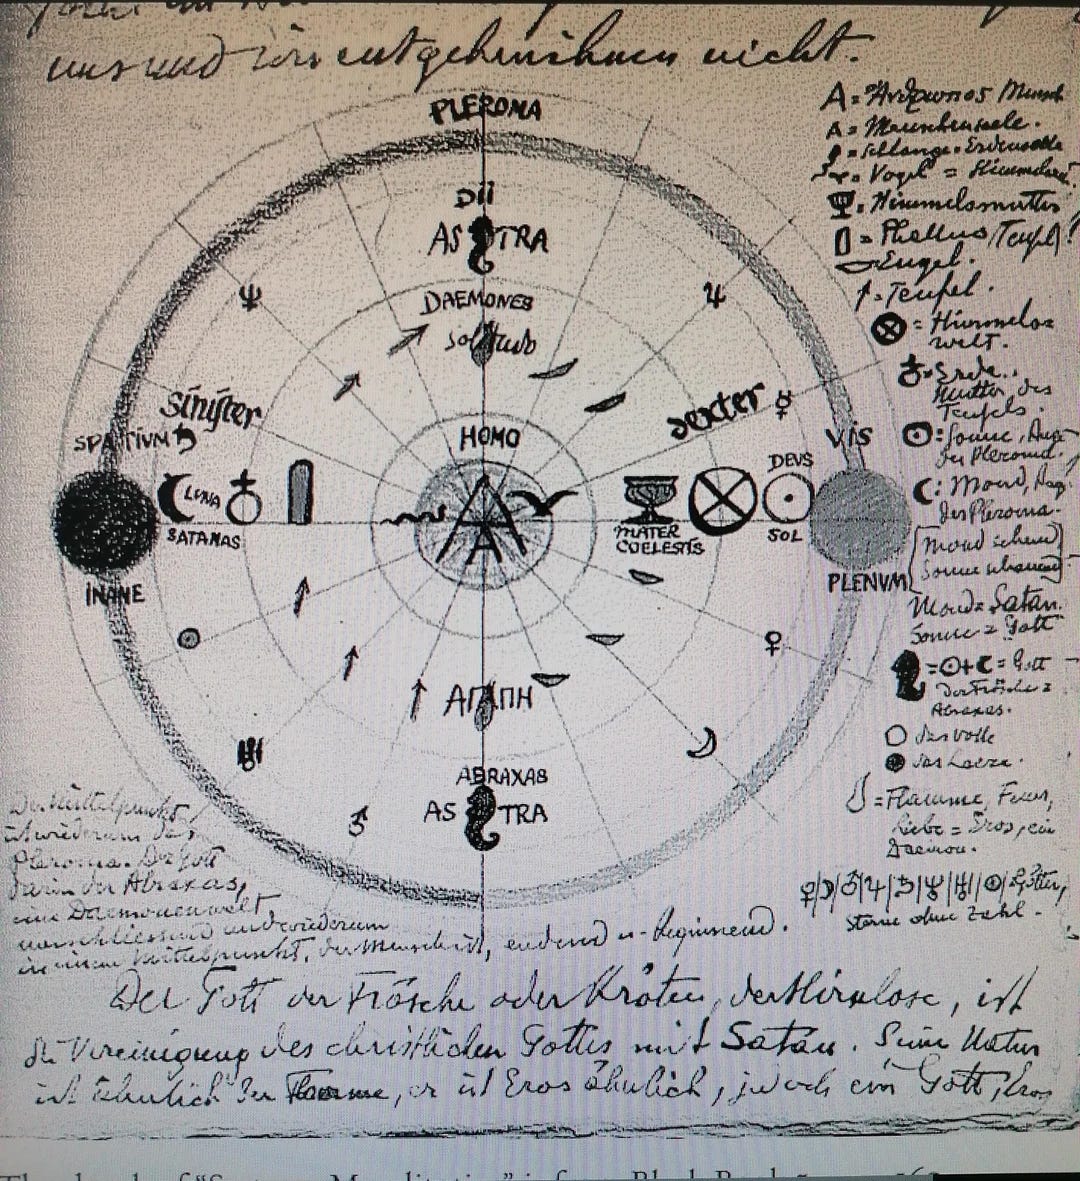 uns und wir entgehen ihnen nicht.
PLEROMA
DII
ASTRA
DAEMONES
HOMO
Sinister
dexter
SPATIUM
VIS
LUNA
SATANAS
INANE
A
MATER
COELESTIS
DEVS
SOL
PLENVM
ΑΓΑΠΗ
ABRAXAS
ASTRA
A = Mensch
A = Menschenseele.
= Schlange = Erdenseele
= Vogel = Himmels
= Himmelsmutter
= Phallus (Teufel)
= Engel.
= Teufel.
= Himmels=
welt.
= Erde.
Mutter des
Teufels.
: Sonne, Auge
des Pleroma.
: Mond, Aug
des Pleroma.
Mond
Sonne
Mond = Satan.
Sonne = Gott
= ☉ + ☾ = Gott
der Frösche =
Abraxas.
das Volle
das Leere.
= Flamme, Feuer,
Liebe = Eros, ein
Daemon.
Götter,
Sterne ohne Zahl.
Der Mittelpunkt
ist wiederum das
Pleroma. Der Gott
darin der Abraxas,
eine Daemonenwelt
und wiederum
in einem Mittelpunkt, der Mensch ist, endend u. beginnend.
Der Gott der Frösche oder Kröten, der Hirnlose, ist
die Vereinigung des christlichen Gottes mit Satan. Seine Natur
ist ähnlich der Flamme, er ist Eros ähnlich, jedoch ein Gott; Eros